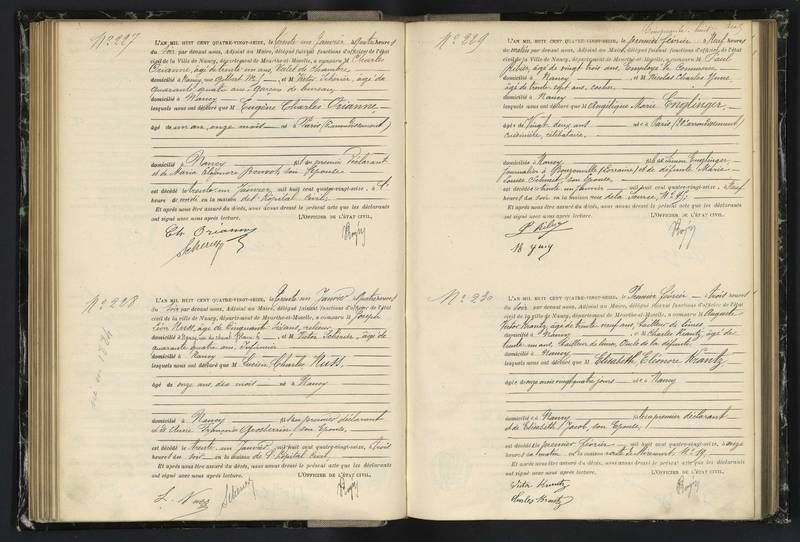 N° 227
L'AN MIL HUIT CENT QUATRE-VINGT-SEIZE, le trente un Janvier à quatre heures
du Soir par devant nous, Adjoint au Maire, délégué faisant fonctions d'officier de l'état
civil de la Ville de Nancy, département de Meurthe-et-Moselle, a comparu M Charles
Orianne, âgé de trente un ans, Valet de chambre,
domicilié à Nancy, rue et M Victor Scherer, âgé de
quarante quatre ans, Garçon de bureau,
domicilié à Nancy
lesquels nous ont déclaré que M Eugène Charles Orianne
âgé de un an, onze mois né à Paris
domicilié à Nancy fils du premier déclarant
et de Maria son épouse
est décédé le trente un Janvier mil huit cent quatre-vingt-seize, à
heure de en la maison de l'hôpital Civil
Et après nous être assuré du décès, nous avons dressé le présent acte que les déclarants
ont signé avec nous après lecture. L'OFFICIER DE L'ÉTAT CIVIL,
Ch Orianne
Scherer
N° 228
L'AN MIL HUIT CENT QUATRE-VINGT-SEIZE, le trente un Janvier à quatre heures
du Soir par devant nous, Adjoint au Maire, délégué faisant fonctions d'officier de l'état
civil de la ville de Nancy, département de Meurthe-et-Moselle, a comparu M Joseph
Léon Nuss, âgé de Cinquante ans,
domicilié à Nancy, et M Victor Scherer, âgé de
quarante quatre ans, Infirmier
domicilié à Nancy
lesquels nous ont déclaré que M Lucien Charles Nuss,
âgé de onze ans, dix mois né à Nancy
domicilié à Nancy fils du premier déclarant
et de Anne Françoise son épouse,
est décédé le trente un Janvier mil huit cent quatre-vingt-seize, à trois
heures du soir en la maison de l'Hôpital Civil,
Et après nous être assuré du décès, nous avons dressé le présent acte que les déclarants
ont signé avec nous après lecture. L'OFFICIER DE L'ÉTAT CIVIL,
L. Nuss
Scherer
Cinquante huit
N° 229
L'AN MIL HUIT CENT QUATRE-VINGT-SEIZE, le premier Février à Neuf heures
du matin par devant nous, Adjoint au Maire, délégué faisant fonctions d'officier de l'état
civil de la Ville de Nancy, département de Meurthe-et-Moselle, a comparu M Paul
âgé de vingt trois ans, Employé de Commerce
domicilié à Nancy et M Nicolas Charles
âgé de trente sept ans, cocher
domicilié à Nancy
lesquels nous ont déclaré que M Angélique Marie Englinger,
âgée de Vingt deux ans née à Paris (20e arrondissement)
cuisinière, célibataire,
domiciliée à Nancy fille de Simon Englinger,
journalier à (Lorraine) et de défunte Marie
Louise Schmit, son épouse,
est décédée le trente un Janvier mil huit cent quatre-vingt-seize, à Neuf
heures du Soir en la maison rue de la
Et après nous être assuré du décès, nous avons dressé le présent acte que les déclarants
ont signé avec nous après lecture. L'OFFICIER DE L'ÉTAT CIVIL,
N° 230
L'AN MIL HUIT CENT QUATRE-VINGT-SEIZE, le Premier Février à trois heures
du Soir par devant nous, Adjoint au Maire, délégué faisant fonctions d'officier de l'état
civil de la ville de Nancy, département de Meurthe-et-Moselle, a comparu M Auguste
Victor Krantz, âgé de trente neuf ans, tailleur de limes
domicilié à Nancy et M Charles Krantz, âgé de
trente un ans, tailleur de limes, Oncle de la défunte
domicilié à Nancy
lesquels nous ont déclaré que M Elisabeth, Eléonore Krantz
âgée de onze ans vingt quatre jours née à Nancy
domiciliée à Nancy fille du premier déclarant
et de Elisabeth Jacob, son épouse,
est décédée le premier Février mil huit cent quatre-vingt-seize, à onze
heures du matin en la maison rue de
Et après nous être assuré du décès, nous avons dressé le présent acte que les déclarants
ont signé avec nous après lecture. L'OFFICIER DE L'ÉTAT CIVIL,
Victor Krantz
Charles Krantz